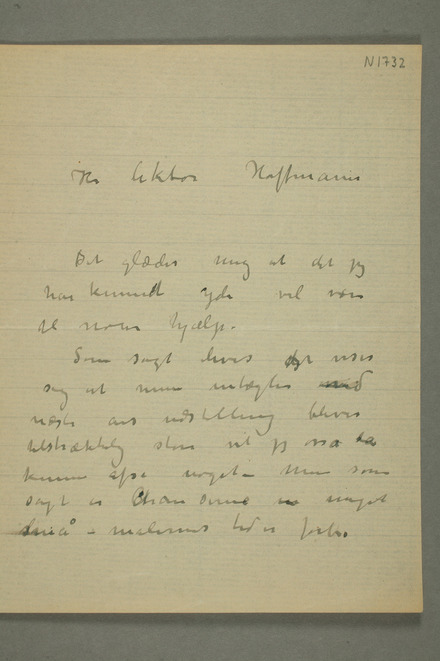 N 1732
Hr lektor Hoffmann
Det glæder mig at det jeg
har kunnet yde vil være
til noen hjælp.
Som sagt hvis det viser
sig at mine indtægter ved
næste års utstilling bliver
tilstrækkelig store vil jeg også da
kunne afse noget – Men som
sagt er Chancerne nu meget
små – malernes tid er forbi.